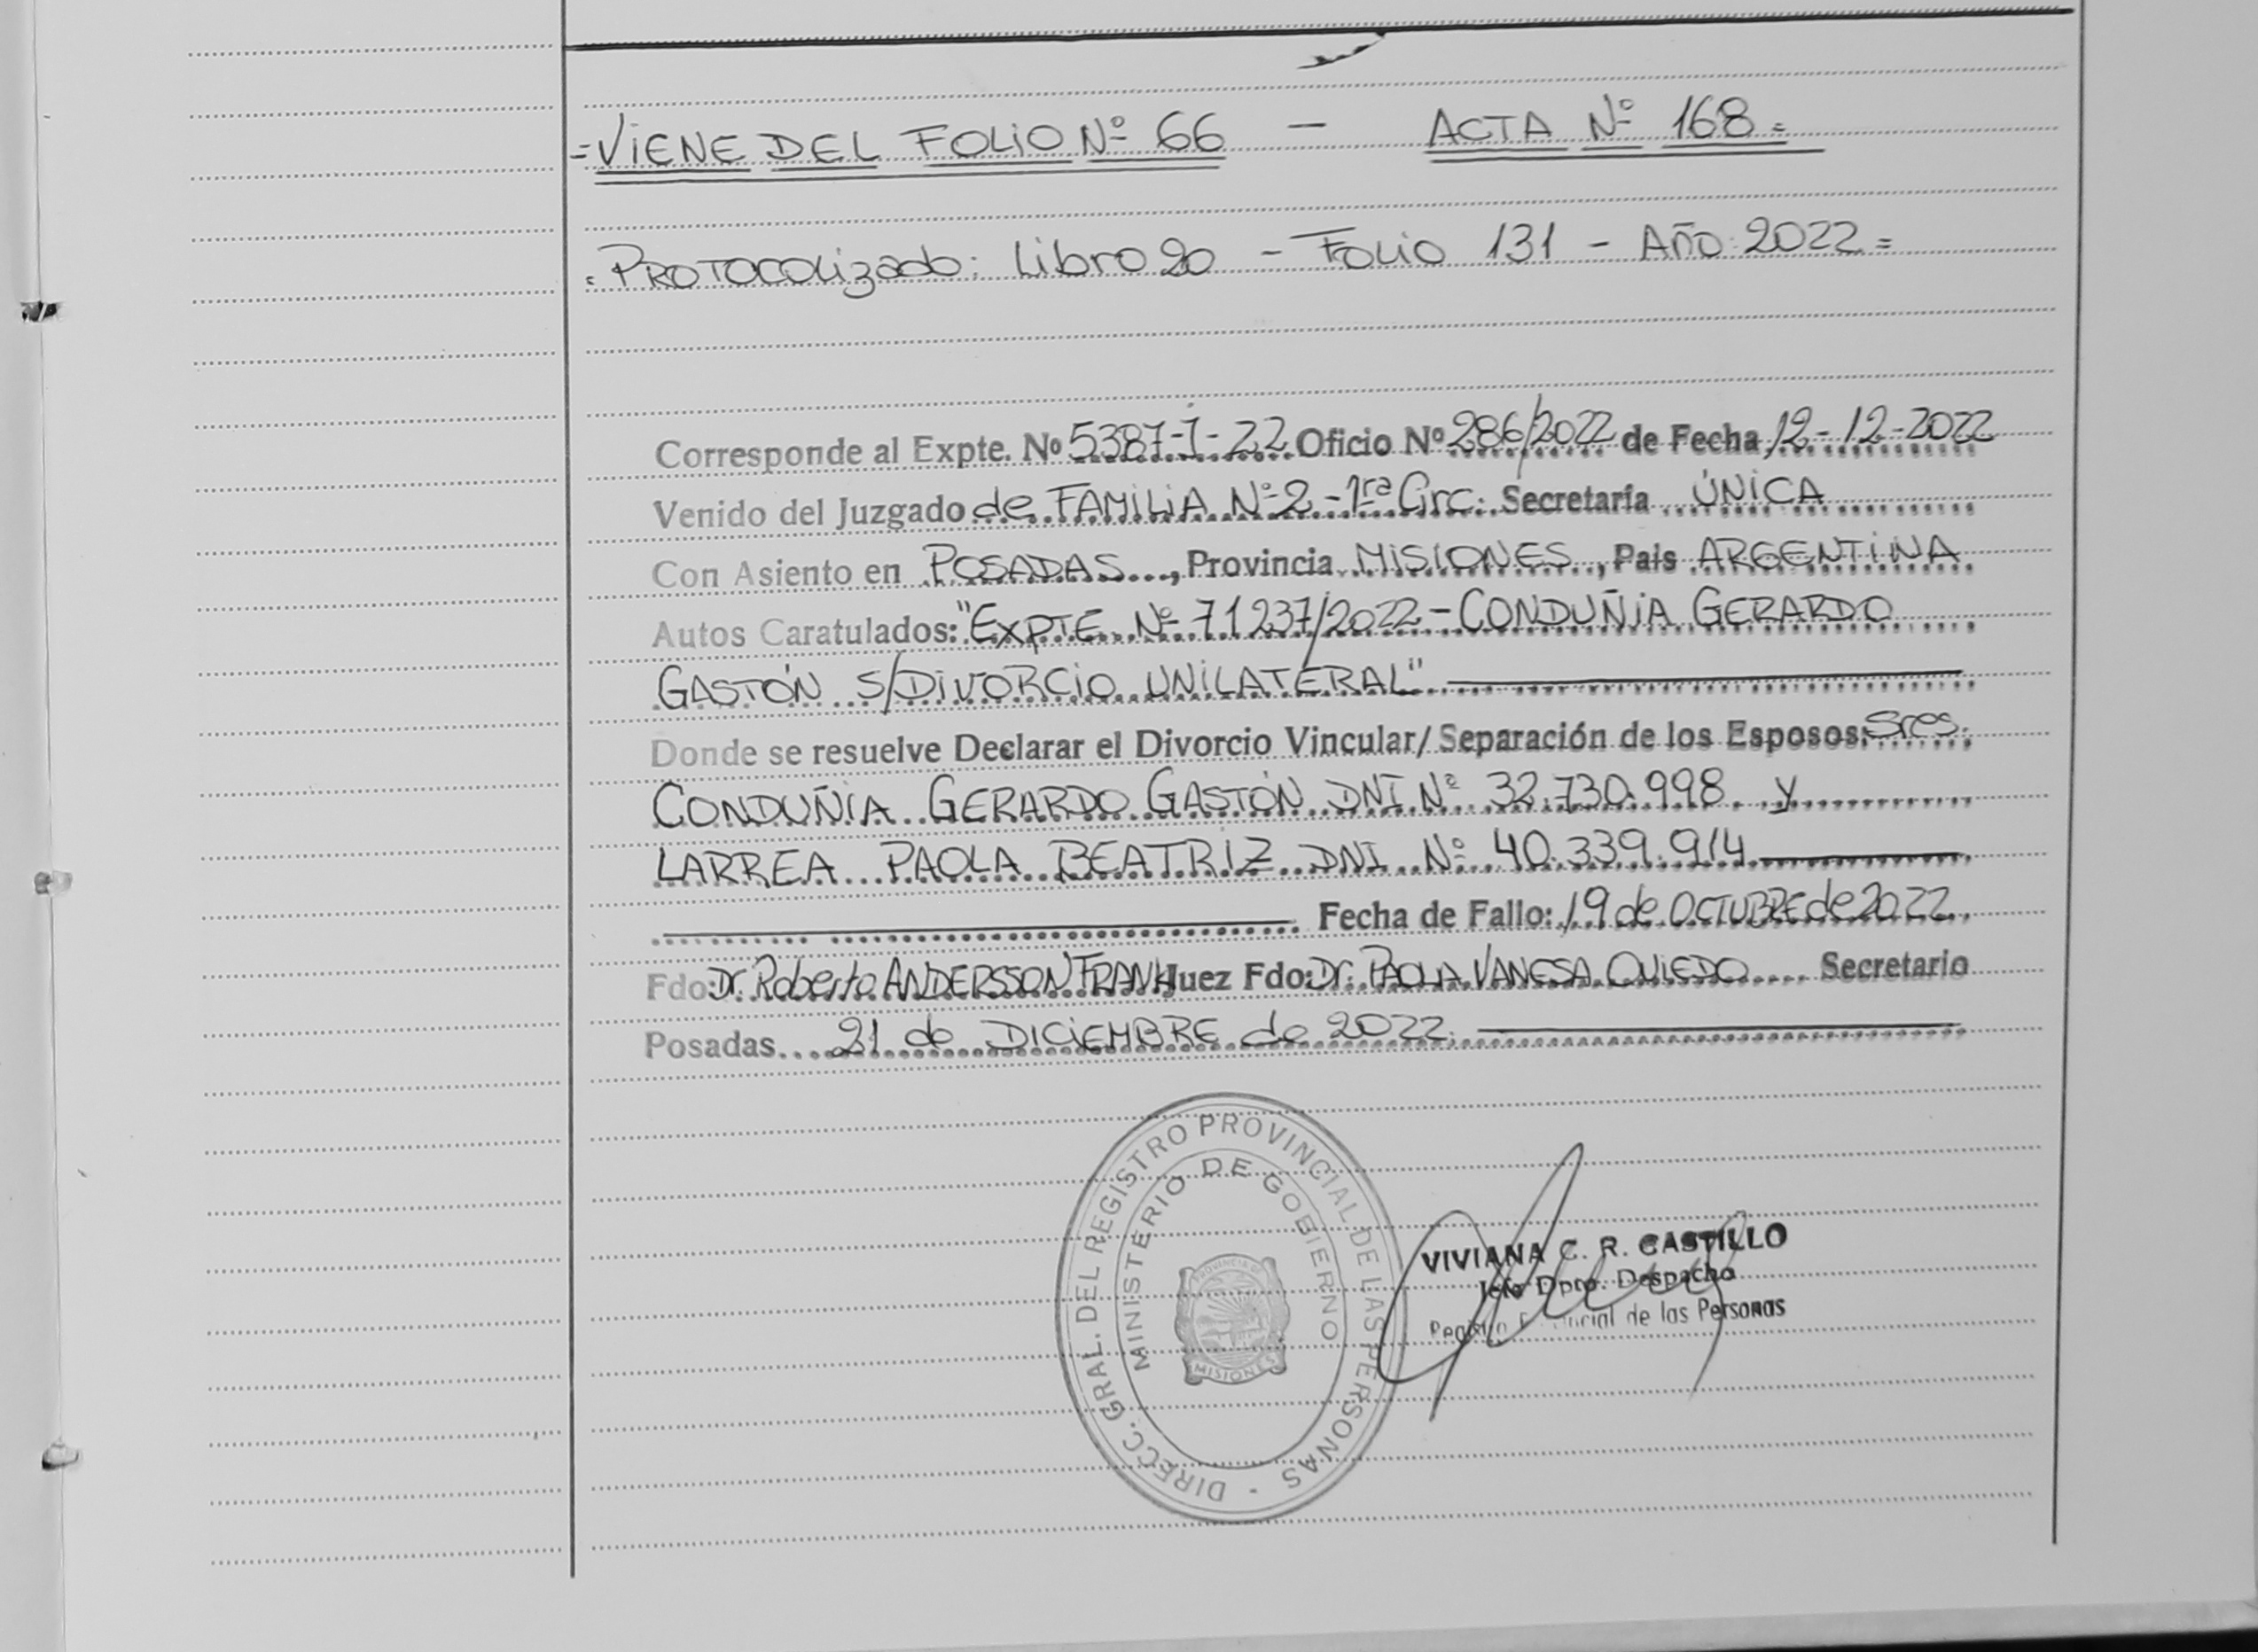 =VIENE DEL FOLIO Nº 66 - ACTA Nº 168=
=PROTOCOLIZADO: Libro 20 - FOLIO 131 - AÑO: 2022=
Corresponde al Expte. Nº 5387-I-22 Oficio Nº 286/2022 de Fecha 12-12-2022
Venido del Juzgado de FAMILIA Nº 2 - 1ra Circ. Secretaría ÚNICA
Con Asiento en POSADAS, Provincia MISIONES, Pais ARGENTINA
Autos Caratulados: "EXPTE. Nº 71237/2022 - CONDUÑIA GERARDO
GASTÓN S/DIVORCIO UNILATERAL"
Donde se resuelve Declarar el Divorcio Vincular/Separación de los Esposos: Sres.
CONDUÑIA GERARDO GASTÓN DNI Nº 32.730.998 y
LARREA PAOLA BEATRIZ DNI Nº 40.339.914
Fecha de Fallo: 19 de OCTUBRE de 2022
Fdo: Dr. Roberto ANDERSSON FRANK Juez Fdo: Dr. PAOLA VANESA OVIEDO Secretario
Posadas 21 de DICIEMBRE de 2022.
DIRECC. GRAL. DEL REGISTRO PROVINCIAL DE LAS PERSONAS -
MINISTERIO DE GOBIERNO
PROVINCIA DE
MISIONES
VIVIANA C. R. CASTILLO
Jefe Dpto. Despacho
Registro Provincial de las Personas